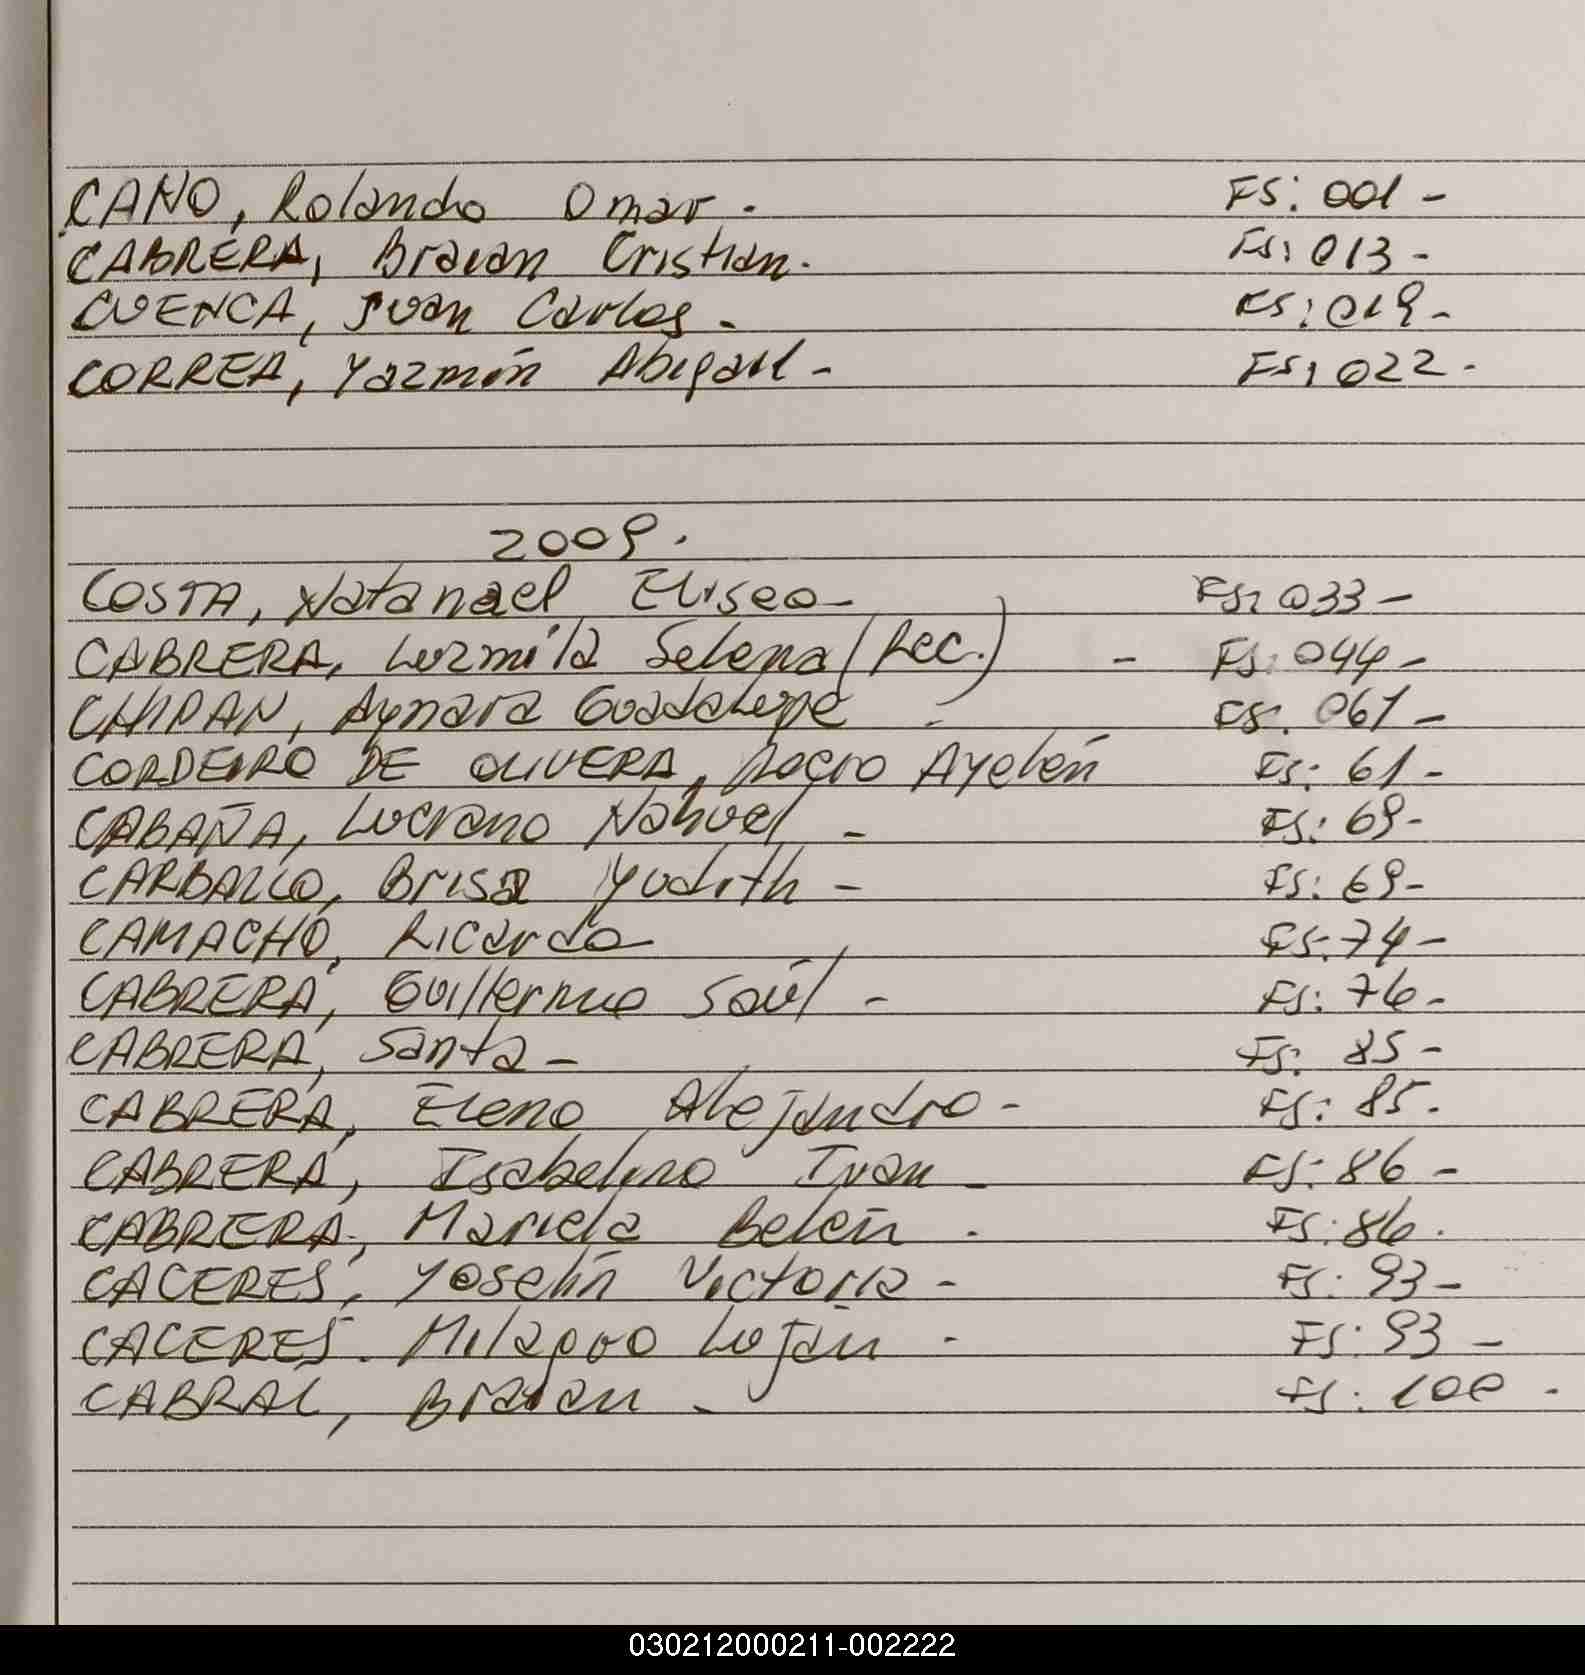 CANO, Rolando Omar. FS: 001 -
CABRERA, Braian Cristian. FS: 013 -
CUENCA, Juan Carlos - FS: 019 -
CORREA, Yazmín Abigail - FS: 022 -
2009.
COSTA, Natanael Eliseo - FS: 033 -
CABRERA, Luzmila Selena (Rec.) - FS: 044 -
CHIPAN, Aymara Guadalupe - FS: 061 -
CORDEIRO DE OLIVERA, Rocío Ayelén FS: 61 -
CABAÑA, Luciano Nahuel - FS: 69 -
CARBALLO, Brisa Yudith - FS: 69 -
CAMACHO, Ricardo FS: 74 -
CABRERA, Guillermo Saúl - FS: 76 -
CABRERA, Santa - FS: 85 -
CABRERA, Eleno Alejandro - FS: 85.
CABRERA, Isabelino Ivan - FS: 86 -
CABRERA, Mariela Belén - FS: 86.
CACERES, Yoselín Victoria - FS: 93 -
CACERES. Milagro Luján - FS: 93 -
CABRAL, Braian - FS: 100 -
030212000211-002222